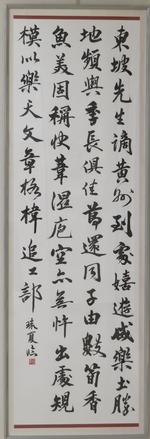 東坡先生謫黃州到處嬉遊感樂土勝
地頻與季長俱佳篇還同子由數筍香
魚美固稱快葦溼庖空亦無忤出處規
模似樂天文章格律追工部